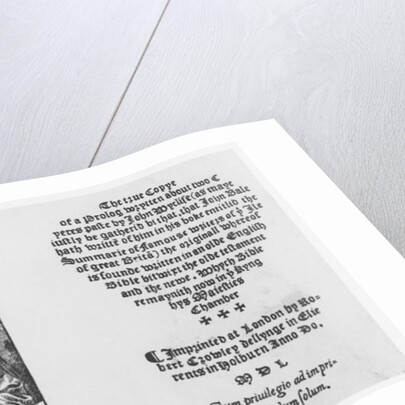 The true Copye
of a Prolog wrytten about two C
yeres paste by John Wycklife (as maye
iustly be gatherid bi that, that John Bale
hath writtē of him in his boke entitlid the
Summarie of famouse writers of yͤ Ile
of great Britā) the originall whereof
is founde written in an olde English
Bible bitwixt the olde testament
and the newe. Whych Bible
remaynith now in yͤ Kyng
hys Maiesties
Chamber
¶ Imprinted at London by Ro-
bert Crowley dellynge in Elie
rents in Holburn. Anno Do.
M D L
Cum priuilegio ad impri-
solum.